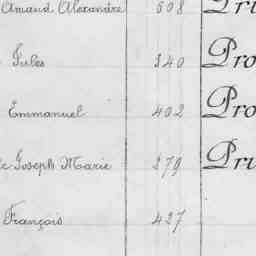 Amand Alexandre 608 Pri
Jules 340 Pro
Emmanuel 402 Pro
Joseph Marie 279 Pri
François 427